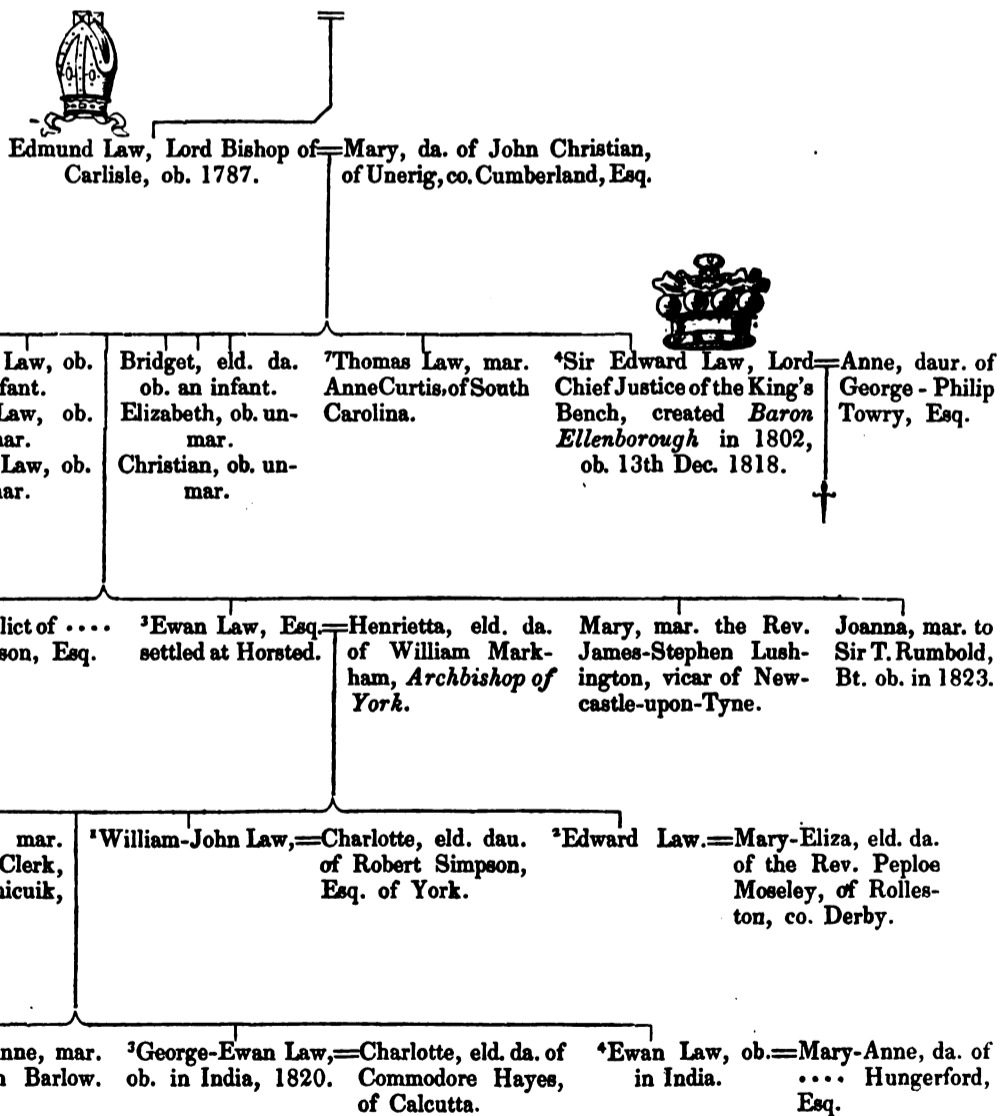 Edmund Law, Lord Bishop of
Carlisle, ob. 1787.
Mary, da. of John Christian,
of Unerig, co. Cumberland, Esq.
Law, ob.
fant.
Law, ob.
mar.
Law, ob.
mar.
Bridget, eld. da.
ob. an infant.
Elizabeth, ob. un-
mar.
Christian, ob. un-
mar.
⁷Thomas Law, mar.
Anne Curtis, of South
Carolina.
⁴Sir Edward Law, Lord
Chief Justice of the King's
Bench, created Baron
Ellenborough in 1802,
ob. 13th Dec. 1818.
Anne, daur. of
George - Philip
Towry, Esq.
lict of ····
son, Esq.
³Ewan Law, Esq.
settled at Horsted.
Henrietta, eld. da.
of William Mark-
ham, Archbishop of
York.
Mary, mar. the Rev.
James-Stephen Lush-
ington, vicar of New-
castle-upon-Tyne.
Joanna, mar. to
Sir T. Rumbold,
Bt. ob. in 1823.
mar.
Clerk,
nicuik,
¹William-John Law,
Charlotte, eld. dau.
of Robert Simpson,
Esq. of York.
²Edward Law.
Mary-Eliza, eld. da.
of the Rev. Peploe
Moseley, of Rolles-
ton, co. Derby.
nne, mar.
Barlow.
³George-Ewan Law,
ob. in India, 1820.
Charlotte, eld. da. of
Commodore Hayes,
of Calcutta.
⁴Ewan Law, ob.
in India.
Mary-Anne, da. of
···· Hungerford,
Esq.